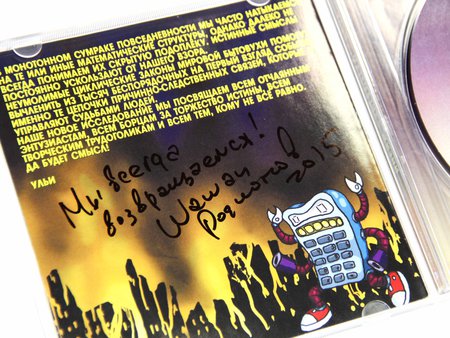 В МОНОТОННОМ СУМРАКЕ ПОВСЕДНЕВНОСТИ МЫ ЧАСТО НАТЫКАЕМСЯ
НА ТЕ ИЛИ ИНЫЕ МАТЕМАТИЧЕСКИЕ СТРУКТУРЫ, ОДНАКО ДАЛЕКО НЕ
ВСЕГДА ПОНИМАЕМ ИХ СКРЫТУЮ ПОДОПЛЕКУ. ИСТИННЫЕ СМЫСЛЫ
ПОСТОЯННО УСКОЛЬЗАЮТ ОТ НАШЕГО ВЗОРА.
НЕУМОЛИМЫЕ ЦИКЛИЧЕСКИЕ ЗАКОНЫ МИРОВОЙ БЫТОВУХИ
ВЫЧЛЕНИТЬ ИЗ ТЫСЯЧ БЕСПОРЯДОЧНЫХ НА ПЕРВЫЙ ВЗГЛЯД СОБЫТИЙ
ИМЕННО ТЕ ЦЕПОЧКИ ПРИЧИННО-СЛЕДСТВЕННЫХ СВЯЗЕЙ, КОТОРЫЕ
УПРАВЛЯЮТ СУДЬБАМИ ЛЮДЕЙ.
НАШЕ НОВОЕ ИССЛЕДОВАНИЕ МЫ ПОСВЯЩАЕМ ВСЕМ ОТЧАЯННЫМ
ЭНТУЗИАСТАМ, ВСЕМ БОРЦАМ ЗА ТОРЖЕСТВО ИСТИНЫ, ВСЕМ
ТВОРЧЕСКИМ ТРУДОГОЛИКАМ И ВСЕМ ТЕМ, КОМУ НЕ ВСЕ РАВНО.
ДА БУДЕТ СМЫСЛ!
УЛЬИ
Мы всегда
возвращаемся!
2015